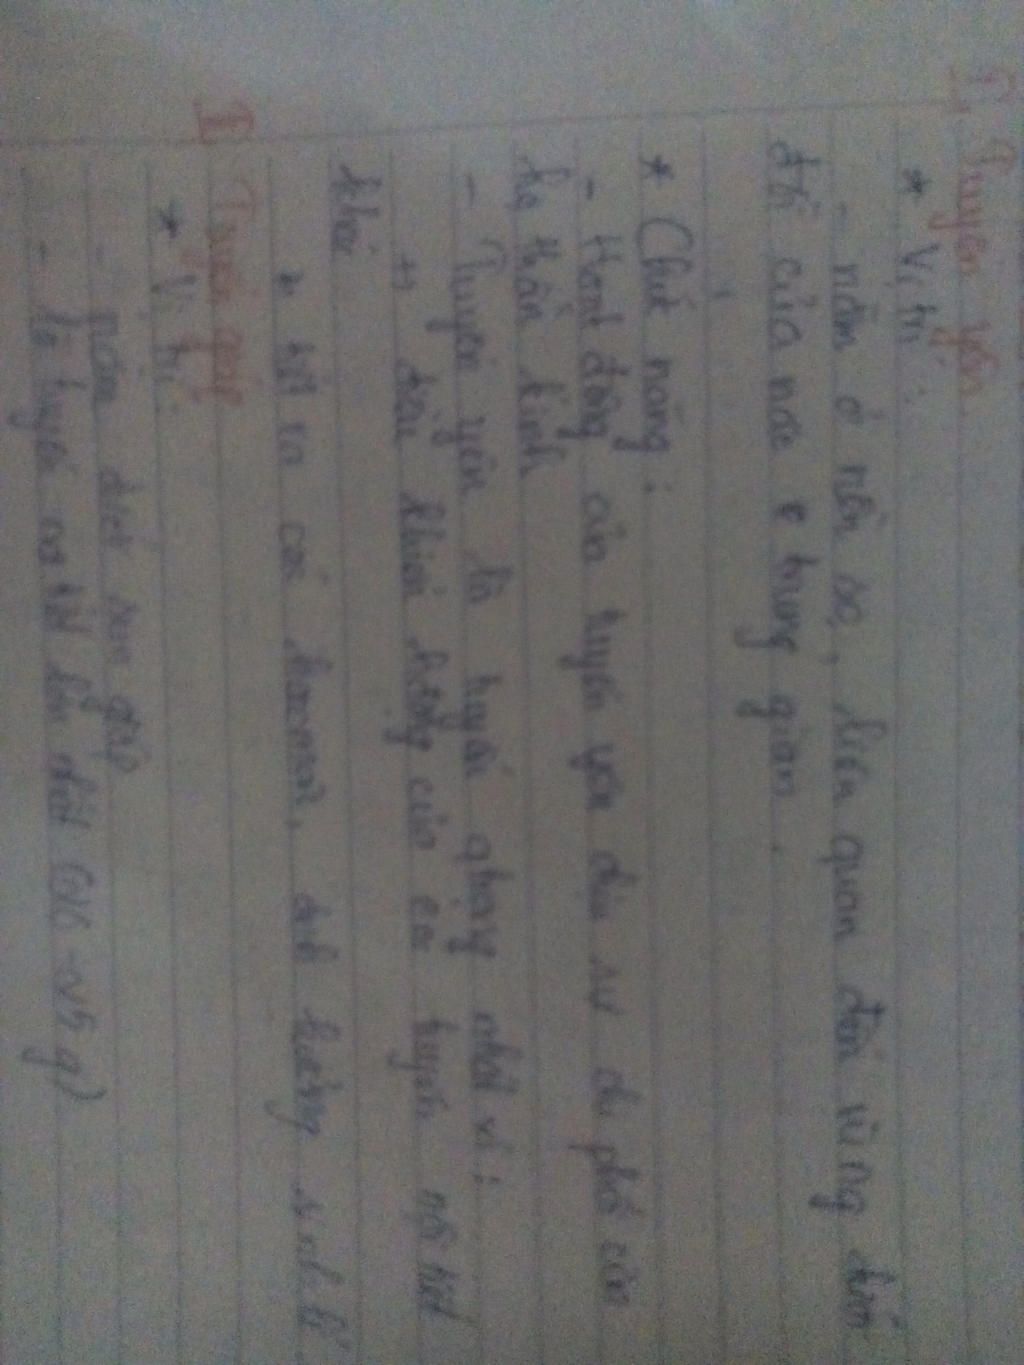 I Tuyến yên
* Vị trí:
- nằm ở nền sọ, liên quan đến vùng dưới
đồi của não trung gian.
* Chức năng:
- Hoạt động của tuyến yên chịu sự chi phối của
hệ thần kinh
- Tuyến yên là tuyến quan trọng nhất vì:
+ điều khiển hoạt động của các tuyến nội tiết
khác
+ tiết ra các hoocmon, ảnh hưởng sinh lí
II Tuyến giáp
* Vị trí:
- nằm dưới sụn giáp
- là tuyến nội tiết lớn nhất (20 - 25 g)